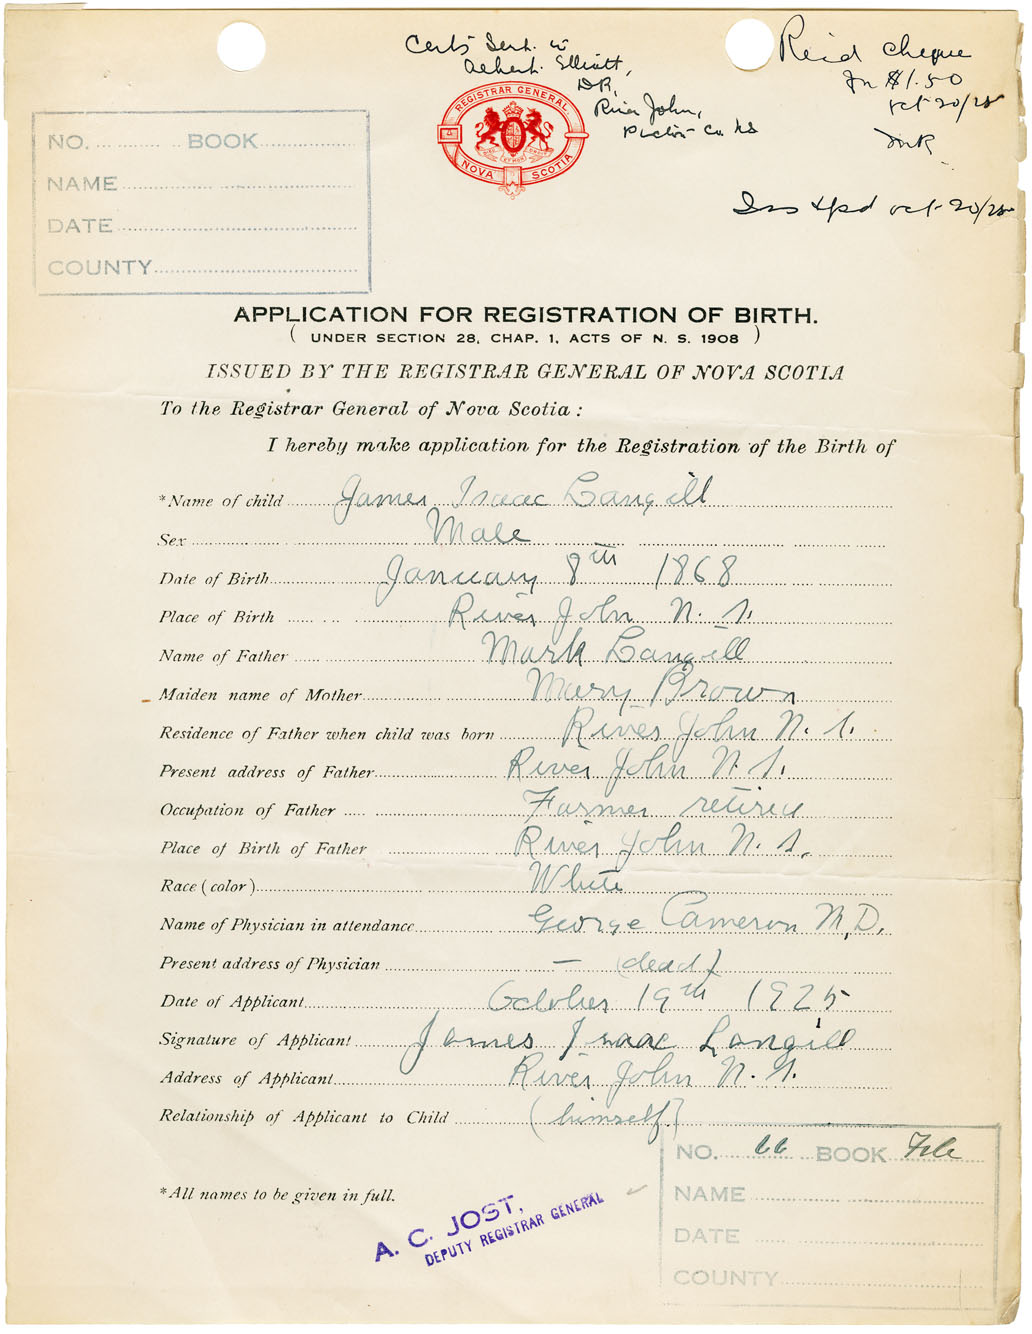 Certs Sent. to
Albert. Elliott,
DR,
River John,
Pictou Co. NS
Recd cheque
for $1.50
oct 20/25
Iss &pd oct 20/25
NO. BOOK
NAME
DATE
COUNTY
REGISTRAR GENERAL
NOVA SCOTIA
APPLICATION FOR REGISTRATION OF BIRTH.
( UNDER SECTION 28, CHAP. 1, ACTS OF N. S. 1908 )
ISSUED BY THE REGISTRAR GENERAL OF NOVA SCOTIA
To the Registrar General of Nova Scotia :
I hereby make application for the Registration of the Birth of
*Name of child James Isaac Langill
Sex Male
Date of Birth January 8th 1868
Place of Birth River John N. S.
Name of Father Mark Langill
Maiden name of Mother Mary Brown
Residence of Father when child was born River John N. S.
Present address of Father River John N. S.
Occupation of Father Farmer retired
Place of Birth of Father River John N. S.
Race (color) White
Name of Physician in attendance George Cameron M.D.
Present address of Physician — (dead)
Date of Applicant October 19th 1925
Signature of Applicant James Isaac Langill
Address of Applicant River John N. S.
Relationship of Applicant to Child (himself)
NO. 66 BOOK File
NAME
DATE
COUNTY
*All names to be given in full.
A. C. JOST,
DEPUTY REGISTRAR GENERAL